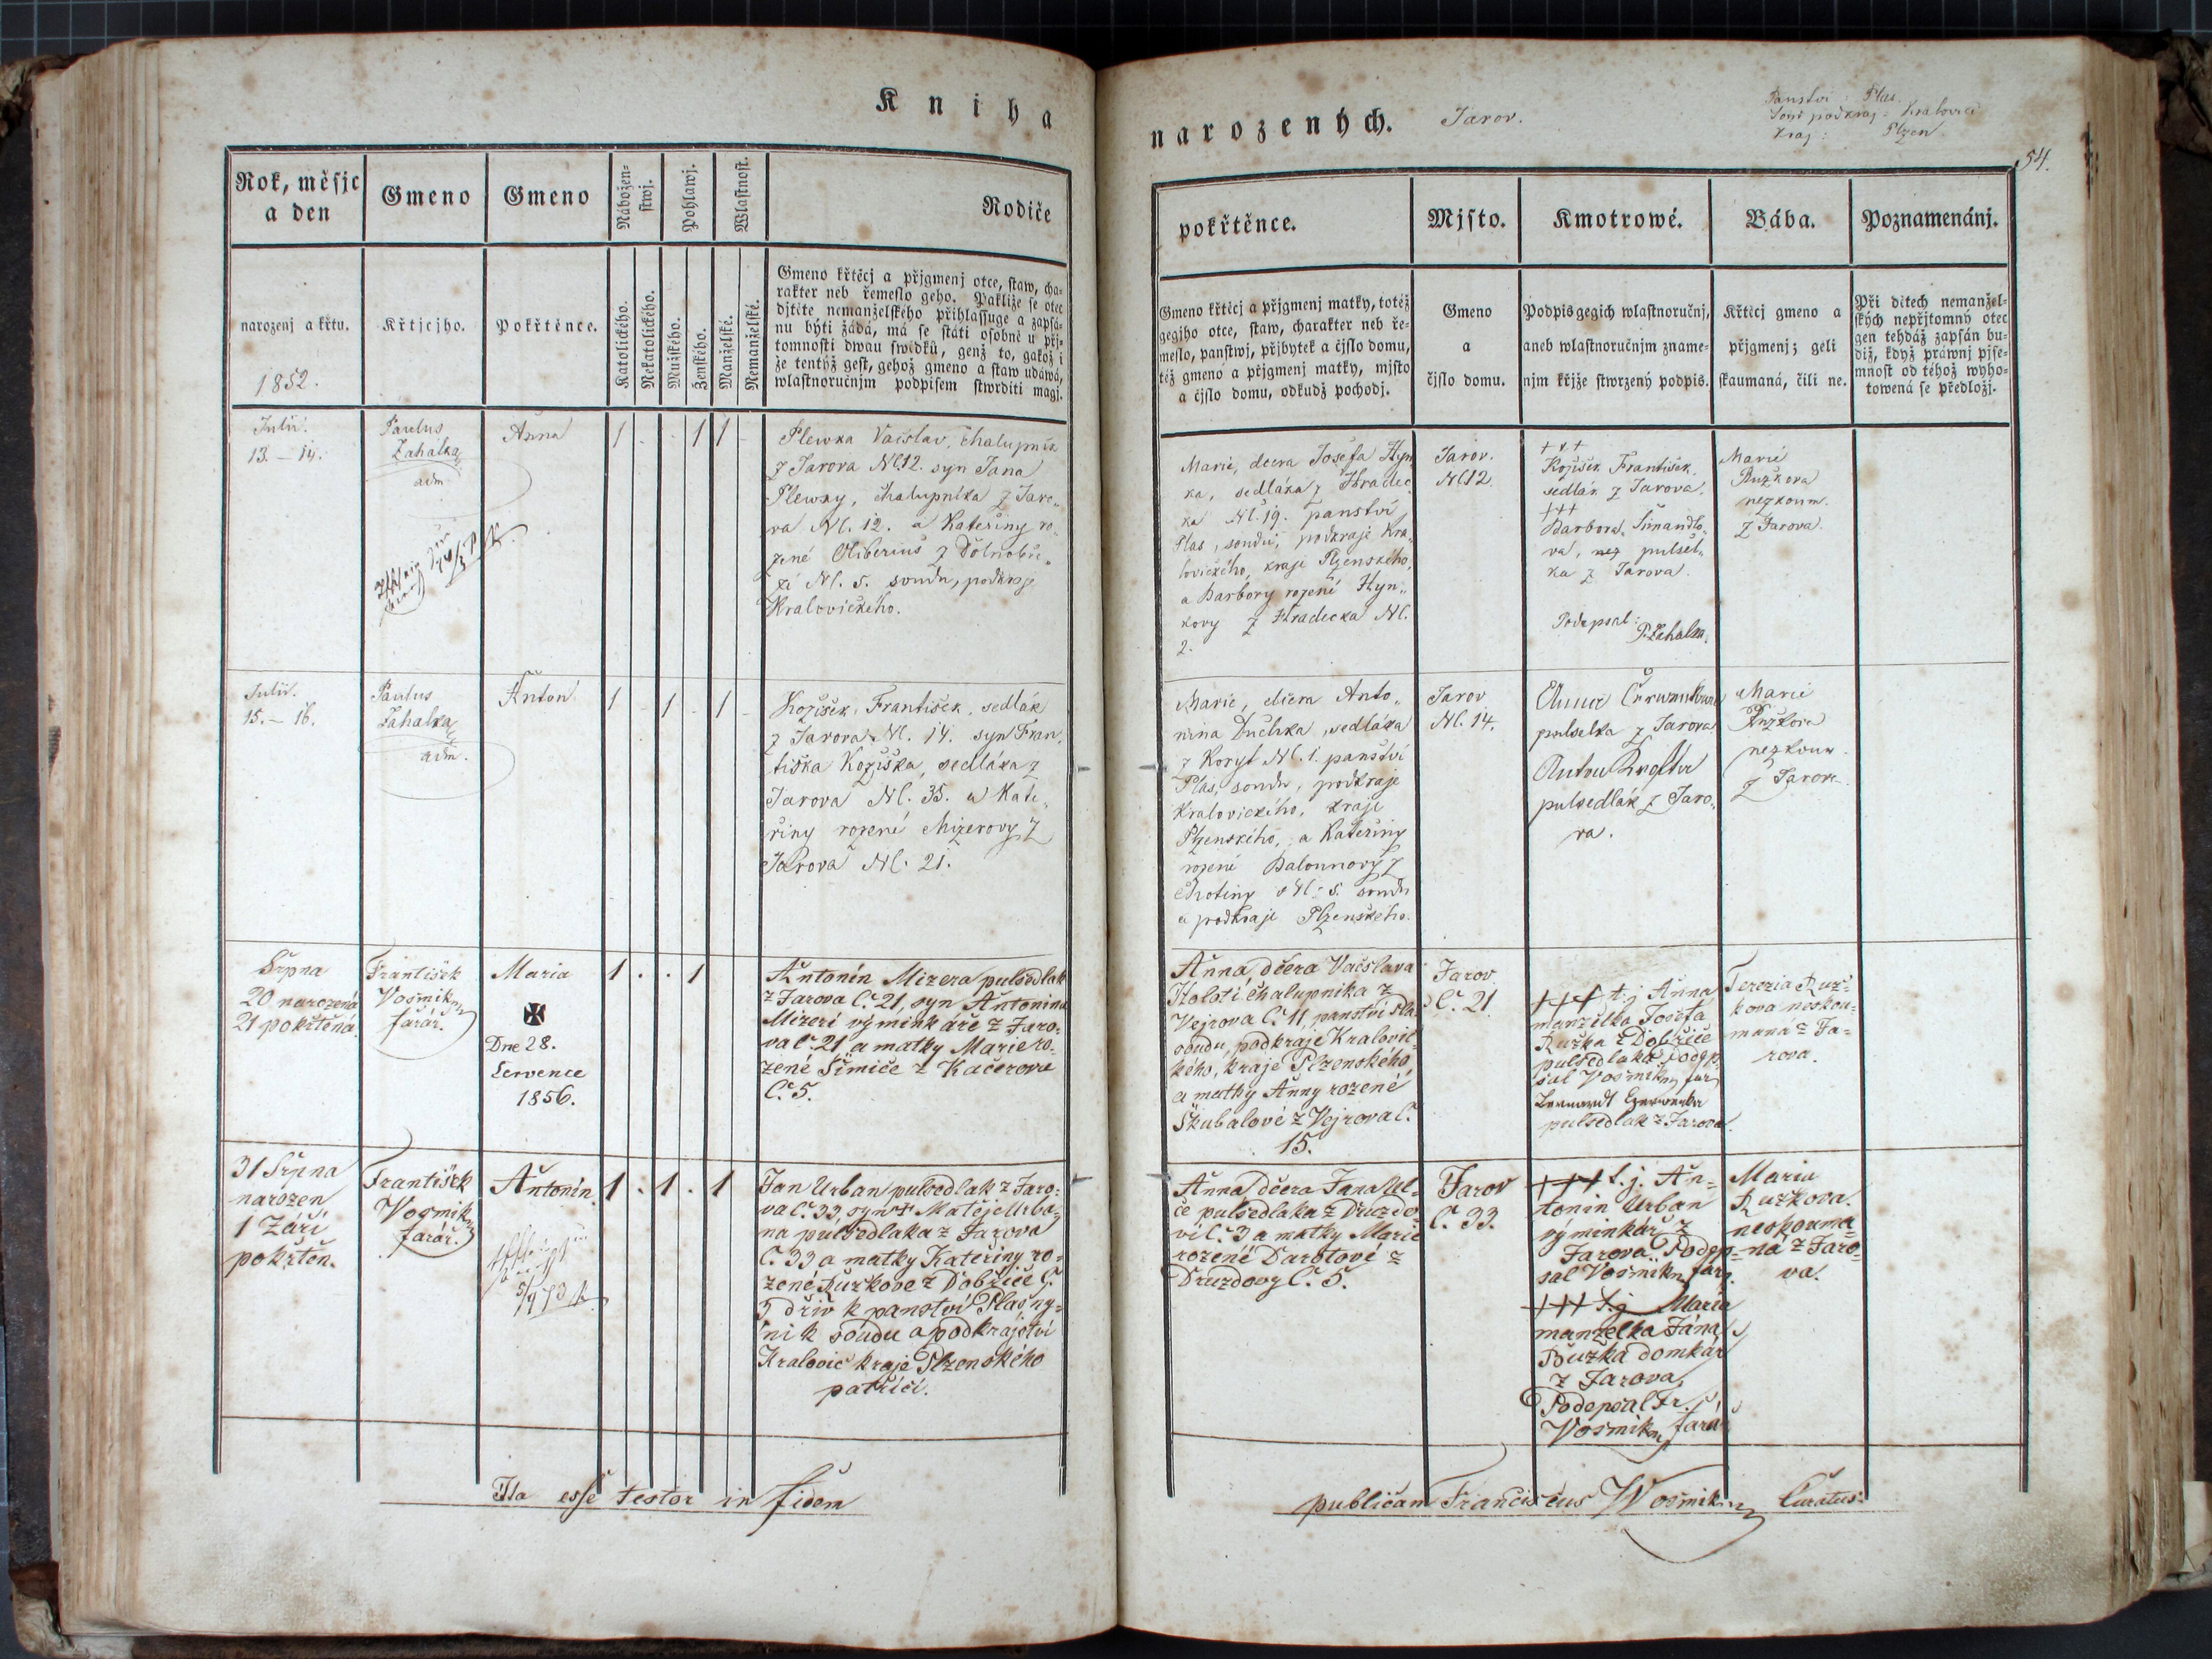 Kniha
narozených.
Jarov.
Panství: Plas.
Kraj: Plzen
54.
Rok, měsjc
a den
Gmeno
Gmeno
Nábožen-
stwj.
Pohlawj.
Wlastnost.
Rodiče
narozenj a křtu.
1852.
Křtjcjho.
Pokřtěnce.
Katolického.
Nekatolického.
Mužského.
Ženského.
Manželské.
Nemanželské.
Gmeno křtěcj a přjgmenj otce, staw, cha-
rakter neb řemeslo geho. Pakliže se otec
djtěte nemanželského přihlassuge a zapsá-
nu býti žádá, má se státi osobně u přj-
tomnosti dwau swědků, genž to, gakož i
že tentýž gest, gehož gmeno a staw udáwá,
wlastnoručnjm podpisem stwrditi magj.
pokřtěnce.
Mjsto.
Kmotrowé.
Bába.
Poznamenánj.
Gmeno křtěcj a přjgmenj matky, totéž
gegjho otce, staw, charakter neb ře-
meslo, panstwj, přjbytek a čjslo domu,
též gmeno a přjgmenj matky, mjsto
a čjslo domu, odkudž pochodj.
Gmeno
a
čjslo domu.
Podpis gegich wlastnoručnj,
aneb wlastnoručnjm zname-
njm křjže stwrzený podpis.
Křtěcj gmeno a
přjgmenj; geli
skaumaná, čili ne.
Při dětech nemanžel-
ských nepřjtomný otec
gen tehdáž zapsán bu-
diž, když práwnj pjse-
mnost od téhož wyho-
towená se předložj.
Julii.
13. – 14.
Paulus
Zahálka
adm
Anna
1 . . 1 1 .
Plewka Vácslav, chalupník
z Jarova Nl. 12. syn Jana
Plewky, chalupníka z Jaro„
va Nl. 12. a Kateřiny ro„
zené Oliberius z Dolnobře„
zí Nl. 5. soudu, podkraje
Kralovického.
Marie, dcera Josefa Hyn
ka, sedláka z Hradec
ka Nl. 19. panství
Plas, soudu, podkraje Kra„
lovického, kraje Plzenského,
a Barbory rozené Hyn„
kovy z Hradecka Nl.
2.
Jarov.
Nl 12.
+ + +
Kožíšek František,
sedlák z Jarova.
+++
Barbora Šimandlo„
va, pulsel„
ka z Jarova.
Podepsal:
P. Zahálka.
Marie
Ružkova
nezkoum.
z Jarova.
Julii.
15. – 16.
Paulus
Zahálka
adm.
Anton
1 . 1 . 1
Kožíšek, František, sedlák
z Jarova Nl. 14. syn Fran„
tiška Kožíška, sedláka z
Jarova Nl. 35. a Kate„
řiny rozené Mizerovy z
Jarova Nl. 21.
Marie, dcera Anto„
nína Duchka, sedláka
z Koryt Nl. 1. panství
Plas, soudu, podkraje
Kralovického, kraje
Plzenského, a Kateřiny
rozené Balounovy z
Chotiny Nl. 5. soudu
a podkraje Plzenského.
Jarov
Nl. 14.
Anna
pulselka z Jarova
Anton
pulsedlák z Jaro„
va.
Marie
Ružkova
nezkoum.
z Jarova
Srpna
20 narozená
21 pokřtěná.
František
Vosmik
farář.
Maria
Dne 28.
Července
1856.
1 . . 1
Antonín Mizera pulsedlak
z Jarova Č. 21, syn Antonina
Mizeri výminkáře z Jaro-
va č. 21 a matky Marie ro-
zené Šimiče z Kačerova
Č. 5.
Anna, dčera Vačslava
Holoti chalupnika z
Vejrova Č. 11, panství Pla
soudu, podkraje Kralovic-
kého, kraje Plzenského,
a matky Anny rozené
Škubalové z Vejrova Č.
15.
Jarov
Č. 21.
+++ t.j. Anna
manželka Josefa
Ružka z Dobřiče
pulsedlaka. Podep-
sal Vosmik far
pulsedlak z Jarova.
Terezia Ruž-
kova neskou-
mana z Ja-
rova.
31 Srpna
narozen
1 Září
pokřtěn.
František
Vosmik
farář.
Antonín
1 . 1 . 1
Jan Urban pulsedlak z Jaro-
va Č. 33, syn Matěje Urba-
na pulsedlaka z Jarova
Č. 33 a matky Kateřiny ro-
zené Ružkove z Dobřiče Č.
5 dřiv k panství Plas, ny-
ni k soudu a podkrajství
Kralovic kraje Plzenského
patřící.
Anna dčera Jana Ul-
če pulsedlaka z Druzdo-
vi Č. 3 a matky Marie
rozené Darotové z
Druzdovy Č. 5.
Jarov
Č. 33.
+++ t.j. An-
tonin Urban
výminkář z
Jarova. Podep-
sal Vosmik far.
+++ t.j. Maria
manželka Jána
Ružka domkář
z Jarova,
Podepsal Fr.
Vosmik farář
Maria
Ružkova.
neskouma-
ná z Jaro-
va.
Ita esse testor in fidem
publicam Franciscus Wosmik Curatus.